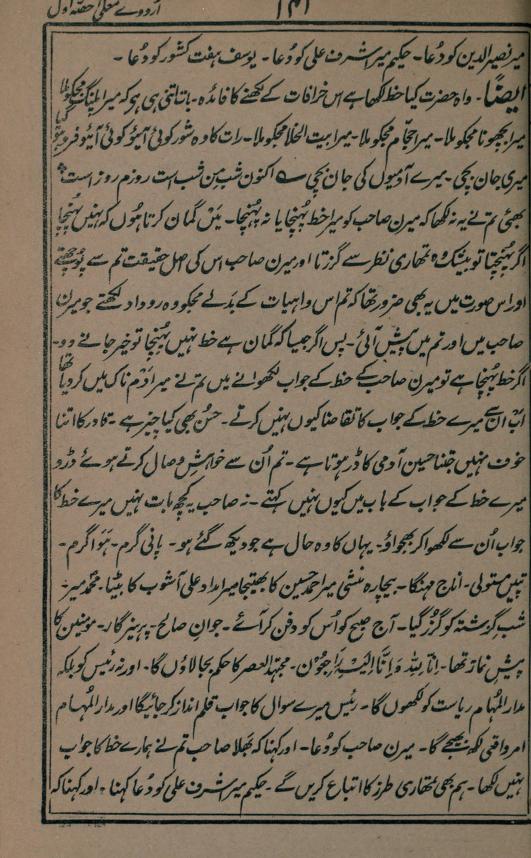 اردوے معلیٰ حصّہ اول
۱۴۱
میر نصیر الدین کو دُعا۔ حکیم میر اشرف علی کو دُعا۔ یوسف ہفت کشور کو دُعا۔
ایضاً۔ واہ حضرت کیا خط لکھا ہے اس خرافات کے لکھنے کا فائدہ۔ بات اتنی ہی ہو کہ میرا پلنگ مجکو ملا
میرا بچھونا مجکو ملا۔ میرا حجّام مجکو ملا۔ میرا بیت الخلا مجکو ملا۔ رات کا وہ شور کوئی آئیو کوئی آئیو فرو ہو گیا
میری جان بچی۔ میرے آدمیوں کی جان بچی ؎ اکنوں شب من شب ست روزم روز است
بھئی تم نے یہ نہ لکھا کہ میرن صاحب کو میرا خط پُہنچا یا نہ پُہنچا۔ میں گمان کرتا ہوں کہ نہیں پُہنچا
اگر پُہنچتا تو بیشک وہ تمھاری نظر سے گزرتا اور میرن صاحب اس کی اصل حقیقت تم سے پوچھتے
اور اس صورت میں یہ بھی ضرور تھا کہ تم اس واہیات کے بدلے مجکو وہ روداد لکھتے جو میرن
صاحب میں اور تم میں پیش آئی۔ پس اگر جیسا کہ گمان ہے خط نہیں پُہنچا تو خیر جانے دو۔
اگر خط پُہنچا ہے تو میرن صاحب کے خط کے جواب لکھوانے میں تم نے میرا دَم ناک میں کر دیا تھا
اب اُن سے میرے خط کے جواب کا تقاضا کیوں نہیں کرتے۔ حسن بھی کیا چیز ہے۔ نادر کا اتنا
خوف نہیں جتنا حسین آدمی کا ڈر ہوتا ہے۔ تم اُن سے خواہشِ وصال کرتے ہوئے ڈرو
میرے خط کے جواب کے باب میں کیوں نہیں کہتے۔ نہ صاحب یہ کچھ بات نہیں میرے خط کا
جواب اُن سے لکھوا کر بھجواؤ۔ یہاں کا وہ حال ہے جو دیکھ گئے ہو۔ پانی گرم۔ ہَوا گرم۔
تپیں مستولی۔ اناج مہنگا۔ بیچارہ منشی میر احمد حسین کا بھتیجا میر امداد علی آشوب کا بیٹا۔ محمد میر۔
شب گزشتہ کو گزر گیا۔ آج صبح کو اُس کو دفن کر آئے۔ جوانِ صالح۔ پرہیزگار۔ مومنین کا
پیش نماز تھا۔ اِنَّا لِلّٰہِ وَ اِنَّا اِلَیْہِ رَاجِعُوْن۔ مجتہد العصر کا حکم بجا لاؤں گا۔ اور نہ رئیس کو بلکہ
مدار المُہام ریاست کو لکھوں گا۔ رئیس میرے سوال کا جواب قلم انداز کر جائیگا اور مدار المُہام
امر واقعی لکھ بھیجے گا۔ میرن صاحب کو دُعا۔ اور کہنا کہ بھلا صاحب تم نے ہمارے خط کا جواب
نہیں لکھا۔ ہم بھی تمھاری طرز کا اتباع کریں گے۔ حکیم میر اشرف علی کو دُعا کہنا۔ اور کہنا کہ